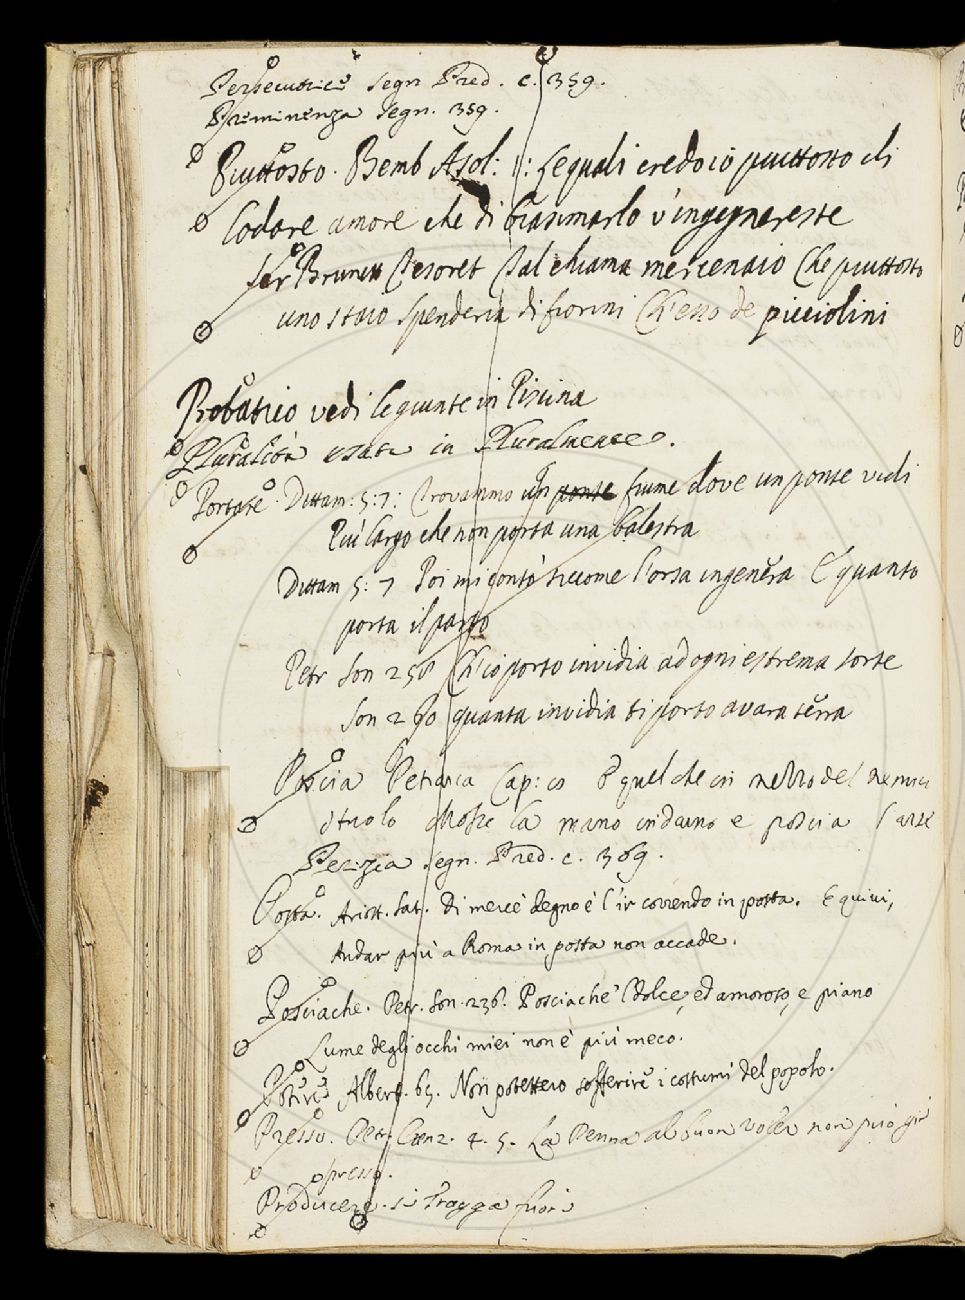 Persecutrice Segn Pred. c. 359.
Preminenza Segn. 359.
Piuttosto. Bemb Asol: 1: le quali credo io piuttosto di
lodare amore che di biasimarlo v'ingegnereste
Ser Brunett Tesoret Tal chiama mercenaio Che piuttosto
uno staio spenderia di fiorini Ch'esso de picciolini
Probatico vedi le giunte in Piscina
Pluralità usata in Pluralmente.
Portare. Dittam: 5: 7: Trovammo un ponte fiume dove un ponte vidi
Piu largo che non porta una balestra
Dittam 5: 7 Poi mi contò siccome l'orsa ingenera E quanto
porta il parto
Petr Son 256 Ch'io porto invidia ad ogni estrema sorte
Son 260 quanta invidia ti porto avara terra
Poscia Petrarca Cap: 10 E quel che in mezzo del nemico
stuolo Mosse la mano indarno e poscia l'arse
Perizia Segn. Pred. c. 369.
Posta. Ariost. Sat. di mercè degno è l'ir correndo in posta. E quivi,
Andar più a Roma in posta non accade.
Posciache. Petr. Son. 236. Posciache 'l dolce, ed amoroso, e piano
Lume degli occhi miei non è più meco.
Potere Albert. 65. Non potettero sofferire i costumi del popolo.
Presso. Petr. Canz. 4. 5. La Penna al buon voler non può gir
presso.
Producere. si Tragga fuori